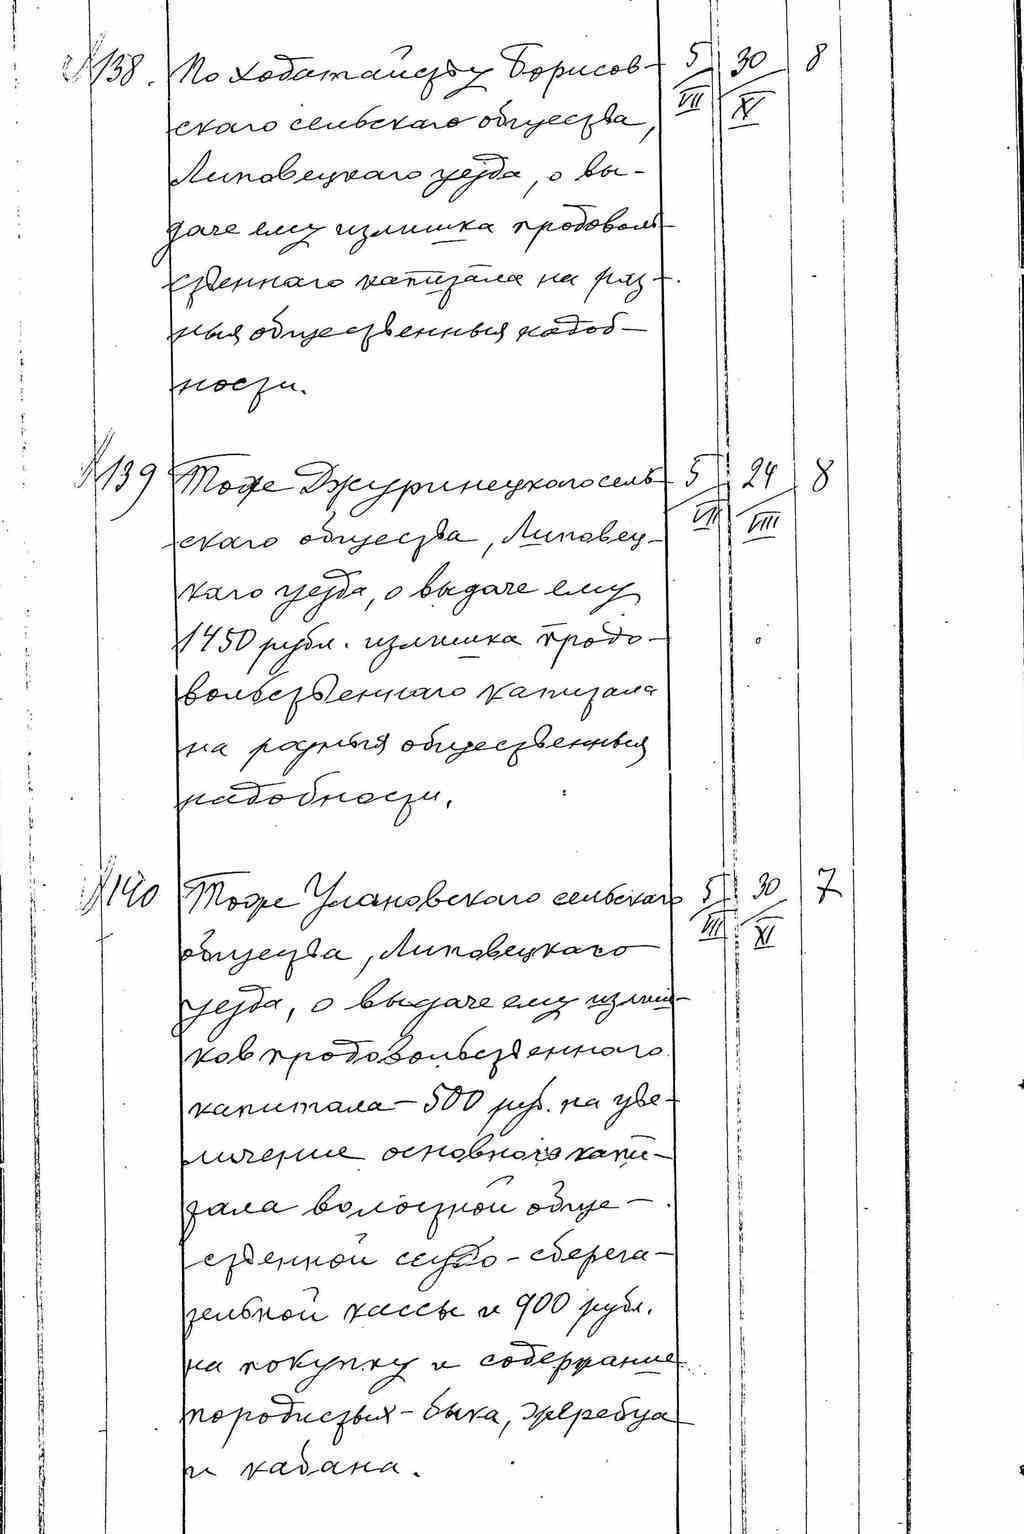 138. По ходатайству Борисов- 5/VII 30/XI 8
скаго сельскаго общества,
Липовецкаго уезда, о вы-
даче ему излишка продоволь-
ственнаго капитала на раз-
ныя общественныя надоб-
ности.
139 Тоже Джуринецкаго сель- 5/VII 24/VIII 8
скаго общества, Липовец-
каго уезда, о выдаче ему
1450 рубл. излишка продо-
вольственнаго капитала
на разныя общественныя
надобности.
140 Тоже Улановскаго сельскаго 5/VII 30/XI 7
общества, Липовецкаго
уезда, о выдаче ему излиш-
ков продовольственнаго
капитала - 500 руб. на уве-
личение основного капи-
тала волостной обще-
ственной ссудо-сберега-
тельной кассы и 900 рубл.
на покупку и содержание
породистых - быка, жеребца
и кабана.